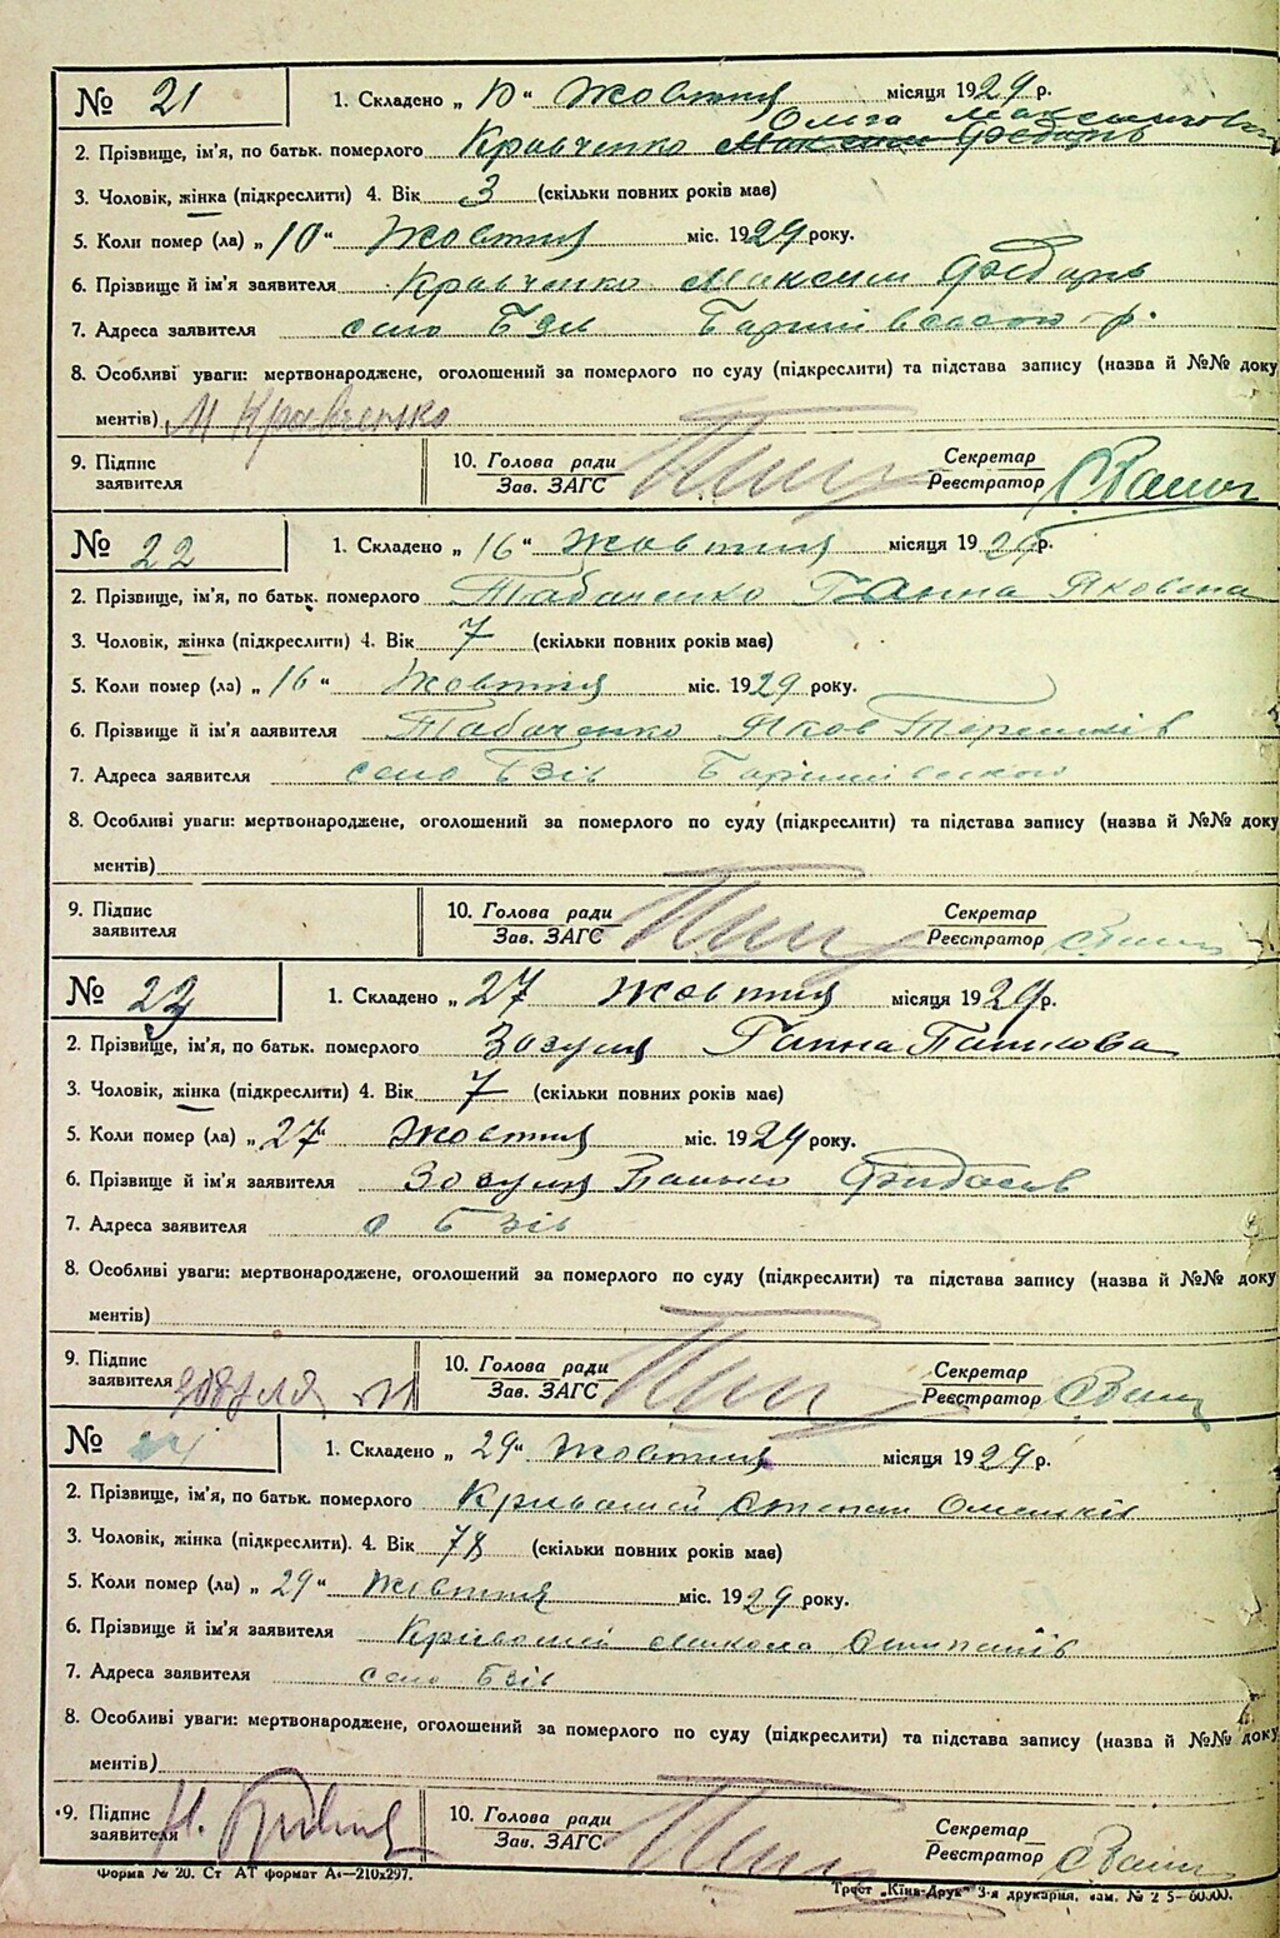 № 21 1. Складено „ 10 “ Жовтня місяця 1929 р.
Ольга Максимовна
2. Прізвище, ім'я, по батьк. померлого Кравченко Максим Федорів
3. Чоловік, жінка (підкреслити) 4. Вік 3 (скільки повних років має)
5. Коли помер (ла) „ 10 “ Жовтня міс. 1929 року.
6. Прізвище й ім'я заявителя Кравченко Максим Федорів
7. Адреса заявителя село Бзів Баришівського р.
8. Особливі уваги: мертвонароджене, оголошений за померлого по суду (підкреслити) та підстава запису (назва й №№ доку
ментів) М Кравченко
9. Підпис заявителя 10. Голова ради Зав. ЗАГС Секретар Реєстратор
№ 22 1. Складено „ 16 “ Жовтня місяця 1929 р.
2. Прізвище, ім'я, по батьк. померлого Табаченко Ганна Яковна
3. Чоловік, жінка (підкреслити) 4. Вік 7 (скільки повних років має)
5. Коли помер (ла) „ 16 “ Жовтня міс. 1929 року.
6. Прізвище й ім'я заявителя Табаченко Яков
7. Адреса заявителя село Бзів Баришівського
8. Особливі уваги: мертвонароджене, оголошений за померлого по суду (підкреслити) та підстава запису (назва й №№ доку
ментів)
9. Підпис заявителя 10. Голова ради Зав. ЗАГС Секретар Реєстратор
№ 23 1. Складено „ 27 Жовтня місяця 1929 р.
2. Прізвище, ім'я, по батьк. померлого Зозуля Ганна Панькова
3. Чоловік, жінка (підкреслити) 4. Вік 7 (скільки повних років має)
5. Коли помер (ла) „ 27 “ Жовтня міс. 1929 року.
6. Прізвище й ім'я заявителя Зозуля Панько
7. Адреса заявителя с Бзів
8. Особливі уваги: мертвонароджене, оголошений за померлого по суду (підкреслити) та підстава запису (назва й №№ доку
ментів)
9. Підпис заявителя Зозуля П 10. Голова ради Зав. ЗАГС Секретар Реєстратор
№ 24 1. Складено „ 29 “ Жовтня місяця 1929 р.
2. Прізвище, ім'я, по батьк. померлого Кривошій Степан Омельків
3. Чоловік, жінка (підкреслити). 4. Вік 78 (скільки повних років має)
5. Коли помер (ла) „ 29 “ Жовтня міс. 1929 року.
6. Прізвище й ім'я заявителя Кривошій Микола Степанів
7. Адреса заявителя село Бзів
8. Особливі уваги: мертвонароджене, оголошений за померлого по суду (підкреслити) та підстава запису (назва й №№ доку
ментів)
9. Підпис заявителя 10. Голова ради Зав. ЗАГС Секретар Реєстратор
Форма № 20. Ст АТ формат А₄—210х297.
Трест „Київ-Друк“ 3-я друкарня, зам. №